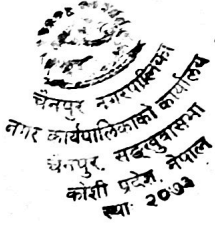 चैनपुर नगरपालिका
नगर कार्यपालिकाको कार्यालय
चैनपुर, सङ्खुवासभा
कोशी प्रदेश, नेपाल
स्था २०७३